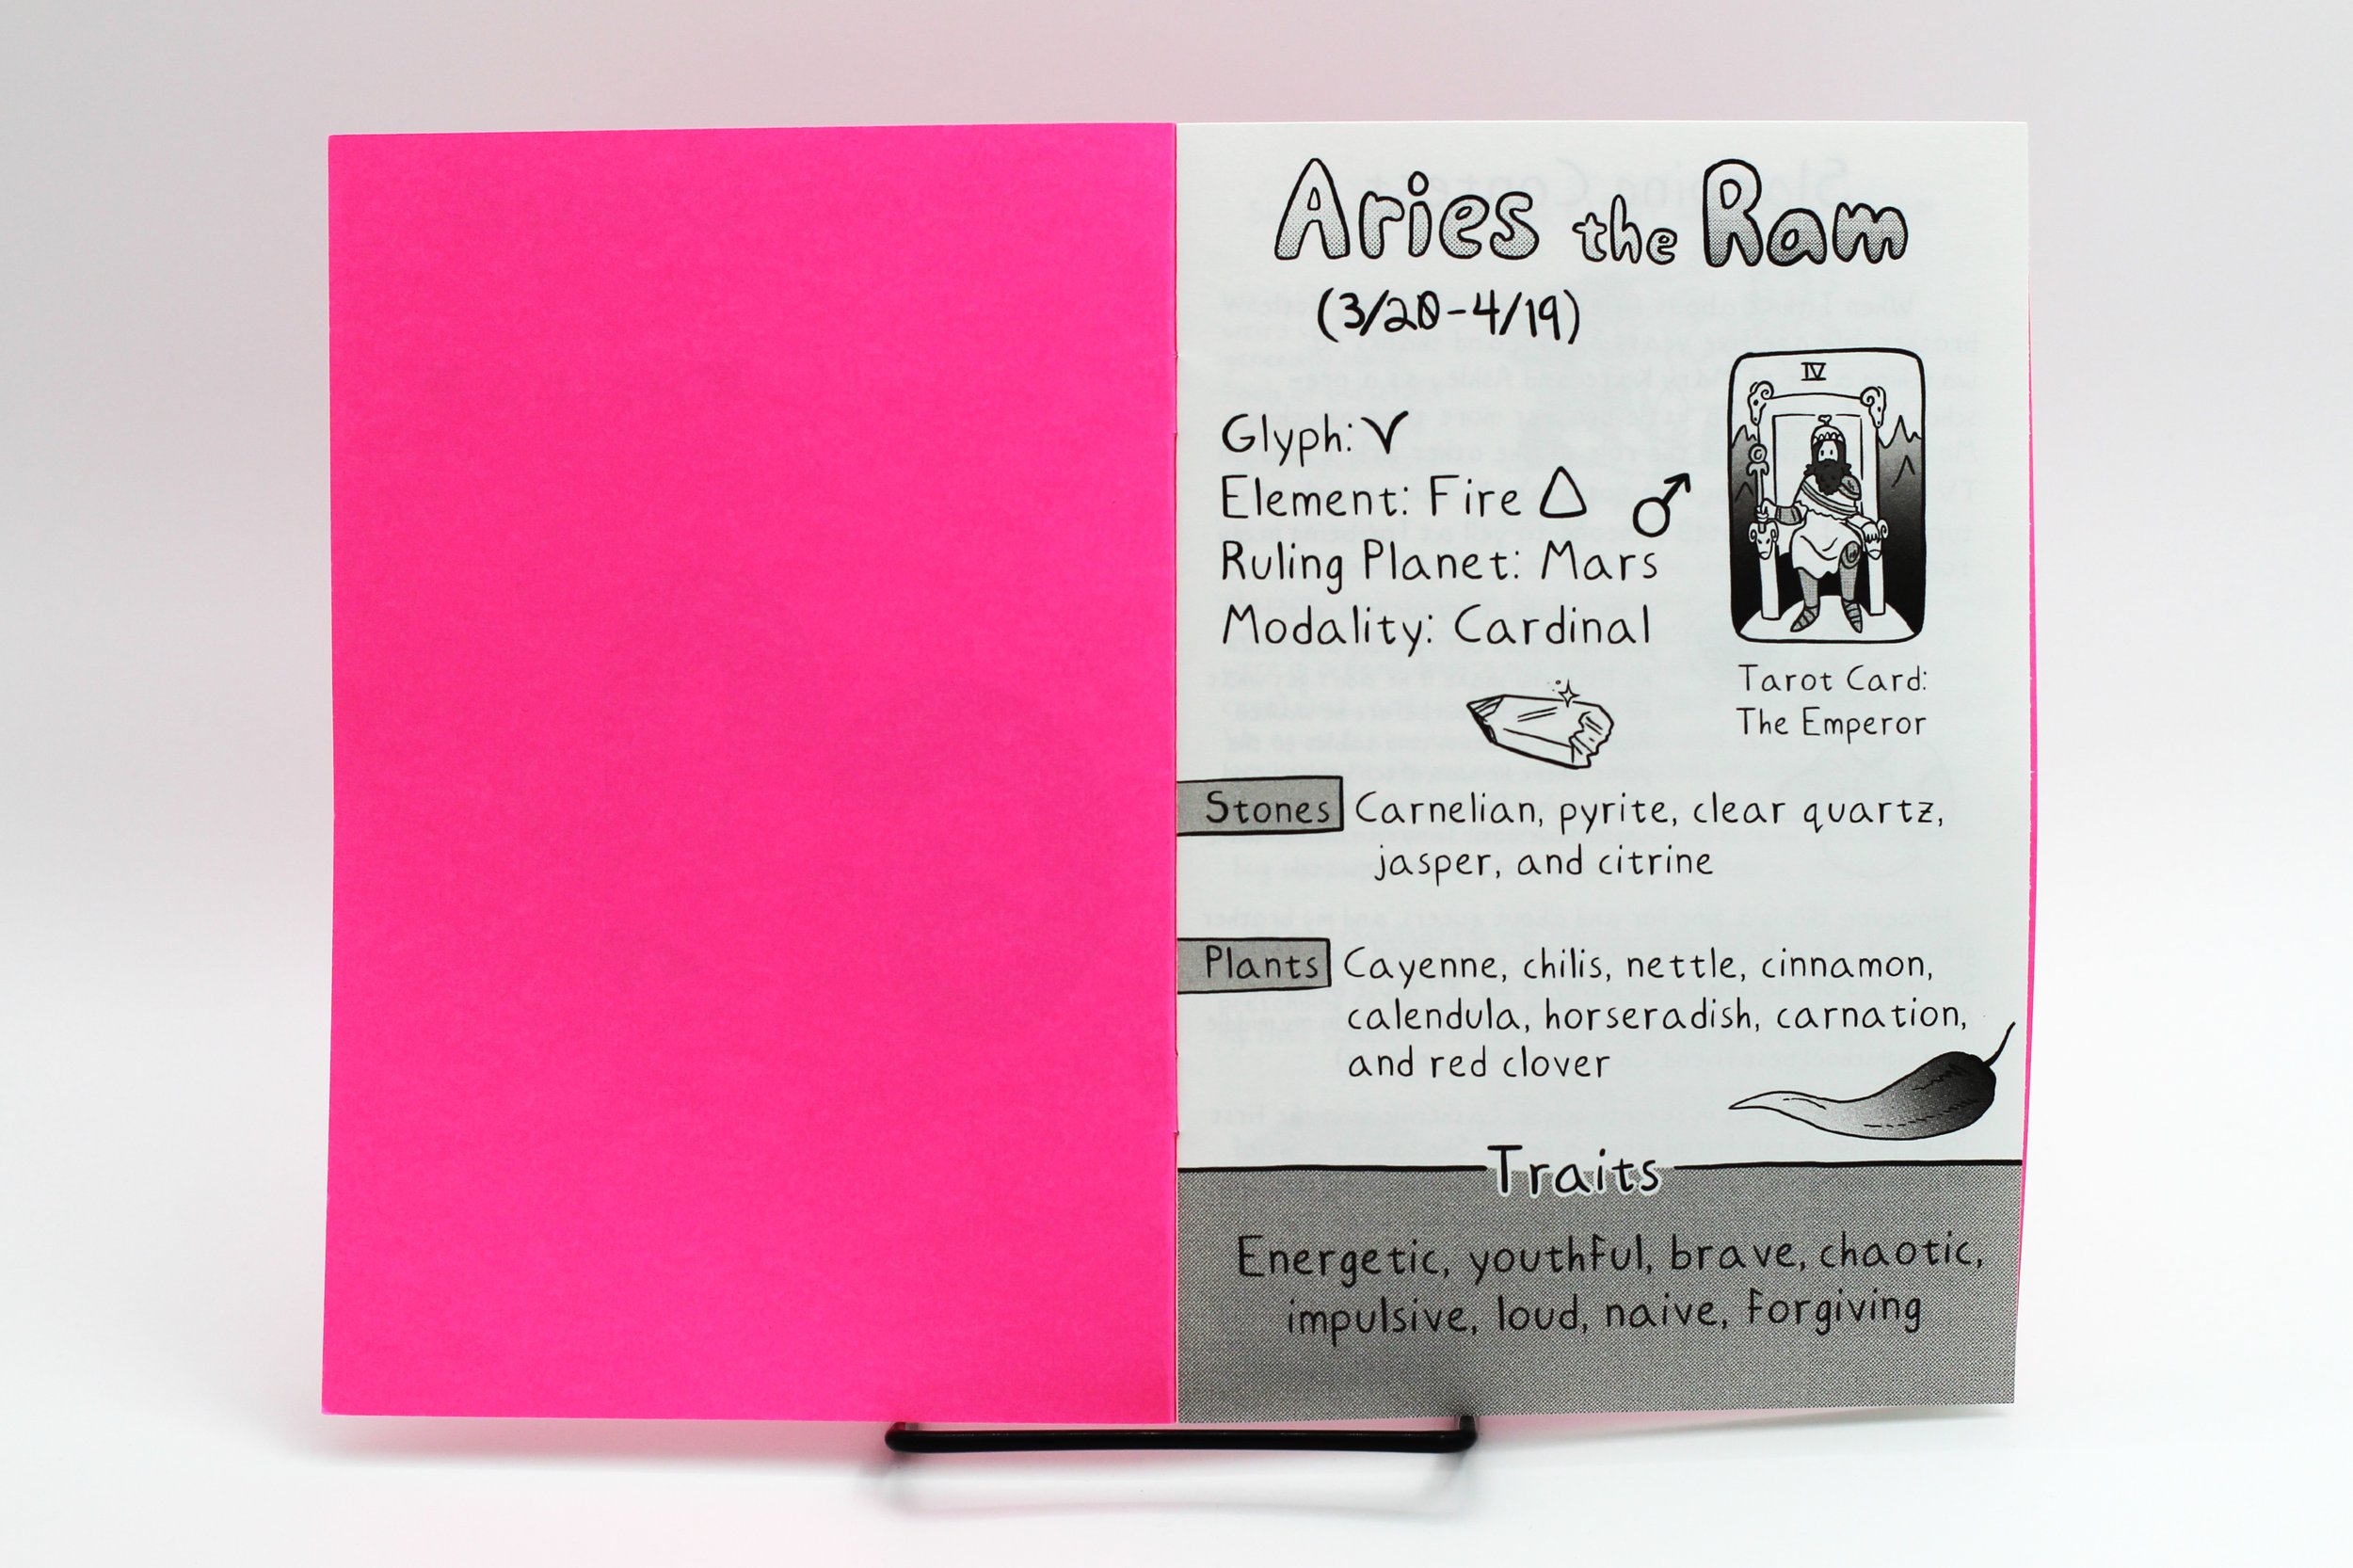 Aries the Ram
(3/20-4/19)
IV
Glyph: ♈
Element: Fire
Ruling Planet: Mars
Modality: Cardinal
Tarot Card:
The Emperor
Stones Carnelian, pyrite, clear quartz,
jasper, and citrine
Plants Cayenne, chilis, nettle, cinnamon,
calendula, horseradish, carnation,
and red clover
Traits
Energetic, youthful, brave, chaotic,
impulsive, loud, naive, forgiving